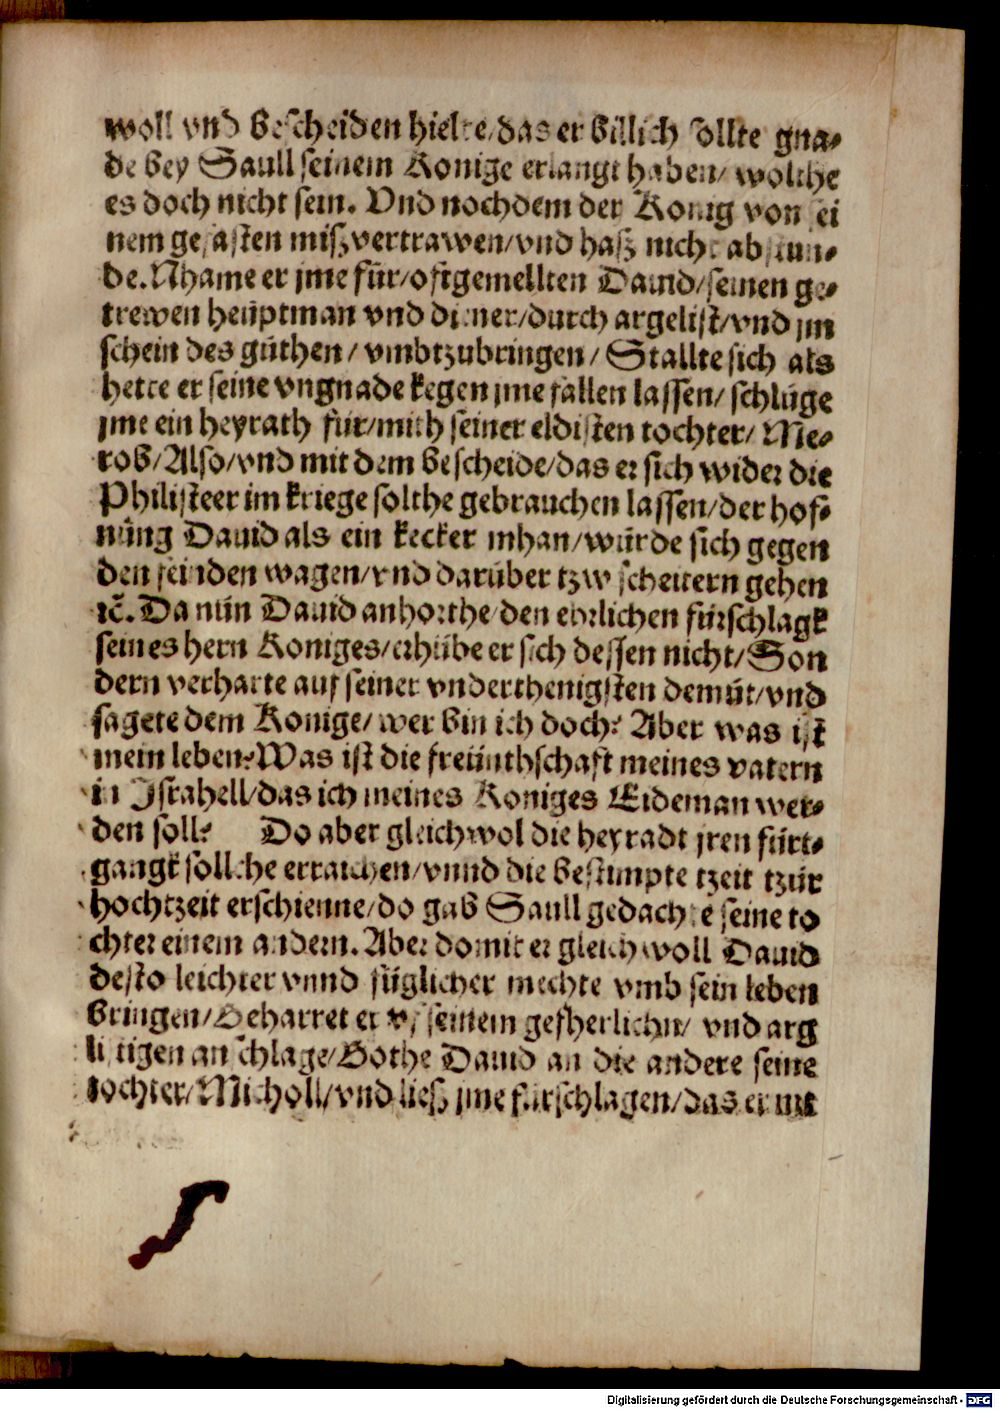 woll vnd bescheiden hielte/das er billich sollte gna-
de bey Saull seinem Konige erlangt haben/ wolthe
es doch nicht sein. Vnd nochdem der Konig von sei
nem gefasten miszvertrawen/vnd hasz nicht abstun-
de. Nhame er jme für/oftgemellten Dauid/seinen ge-
trewen heüptman vnd diener/durch argelist/vnd jm
schein des güthen/ vmbtzubringen/ Stallte sich als
hette er seine vngnade kegen jme fallen lassen/ schlüge
jme ein heyrath für/mith seiner eldisten tochter/ Me-
rob/Also/vnd mit dem bescheide/das er sich wider die
Philisteer im kriege solthe gebrauchen lassen/der hof-
nüng Dauid als ein kecker mhan/würde sich gegen
den feinden wagen/vnd darüber tzw scheittern gehen
ꝛc̃. Da nün Dauid anhorthe/den ehrlichen fürschlagk
seines hern Koniges/erhübe er sich dessen nicht/Son
dern verharte auf seiner vnderthenigsten demüt/vnd
sagete dem Konige/ wer bin ich doch? Aber was ist
mein leben? Was ist die freüntschaft meines vatern
in Jsrahell/das ich meines Koniges Eideman wer-
den soll? Do aber gleichwol die heyradt jren fürt-
gangk sollche erraichen/vnnd die bestimpte tzeit tzür
hochtzeit erschienne/do gab Saull gedachte seine to
chter einem andern. Aber domit er gleichwoll Dauid
desto leichter vnnd füglicher mechte vmb sein leben
bringen/Beharret er vf seinem gefherlichn/ vnd arg
listigen anschlage/Bothe Dauid an die andere seine
tochter/Micholl/vnd liesz jme fürschlagen/das er mit
Digitalisierung gefördert durch die Deutsche Forschungsgemeinschaft - DFG